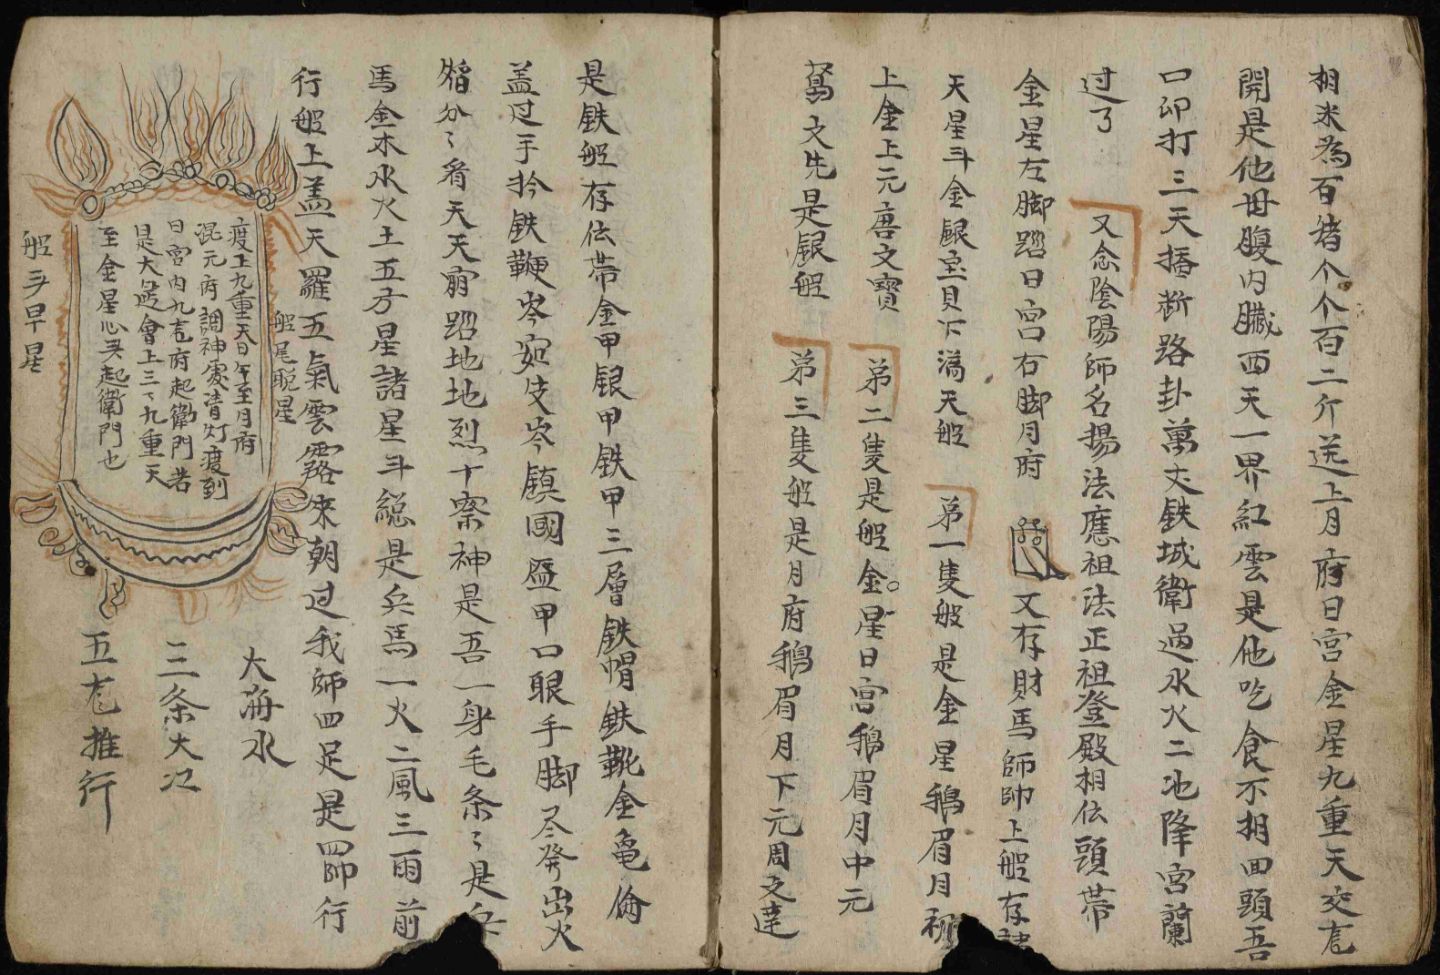 相米為百猪个个百二斤送上月府日宮金星九重天交
開是他母腹内臟西天一界紅雲是他吃食不相回頭吾
口卯打三天断路卦萬丈铁城衛過水火二池降宮蘭
过了 又念陰陽師名揚法應祖法正祖登殿相伝頭帯
金星左脚踏日宮右脚月府 又存財馬師帥上船存
天星斗金銀宝貝下滿天船 弟一隻船是金星鵝眉月
上金上元唐文寶 弟二隻是船金星日宮鵝眉月中元
葛文先是銀船 弟三隻船是月府鵝眉月下元周文達
是铁船存伝帯金甲銀甲铁甲三層铁帽铁靴金亀
盖过手铁鞭岑岑鎮國盔甲口眼手脚尽發出火
分〻看天天崩踏地地烈十察神是吾一身毛条〻是兵
馬金木水火土五方星諸星斗總是兵馬一火二風三雨前
行船上盖天羅五氣雲露來朝过我師四足是四師行
船尾星
渡上九重天日午至月府
混元府調神處清灯渡到
日宮内九府起衛門若
是大會上三十九重天
至金星心头起衛門也
船头早星
大海水
三条大江
五推行